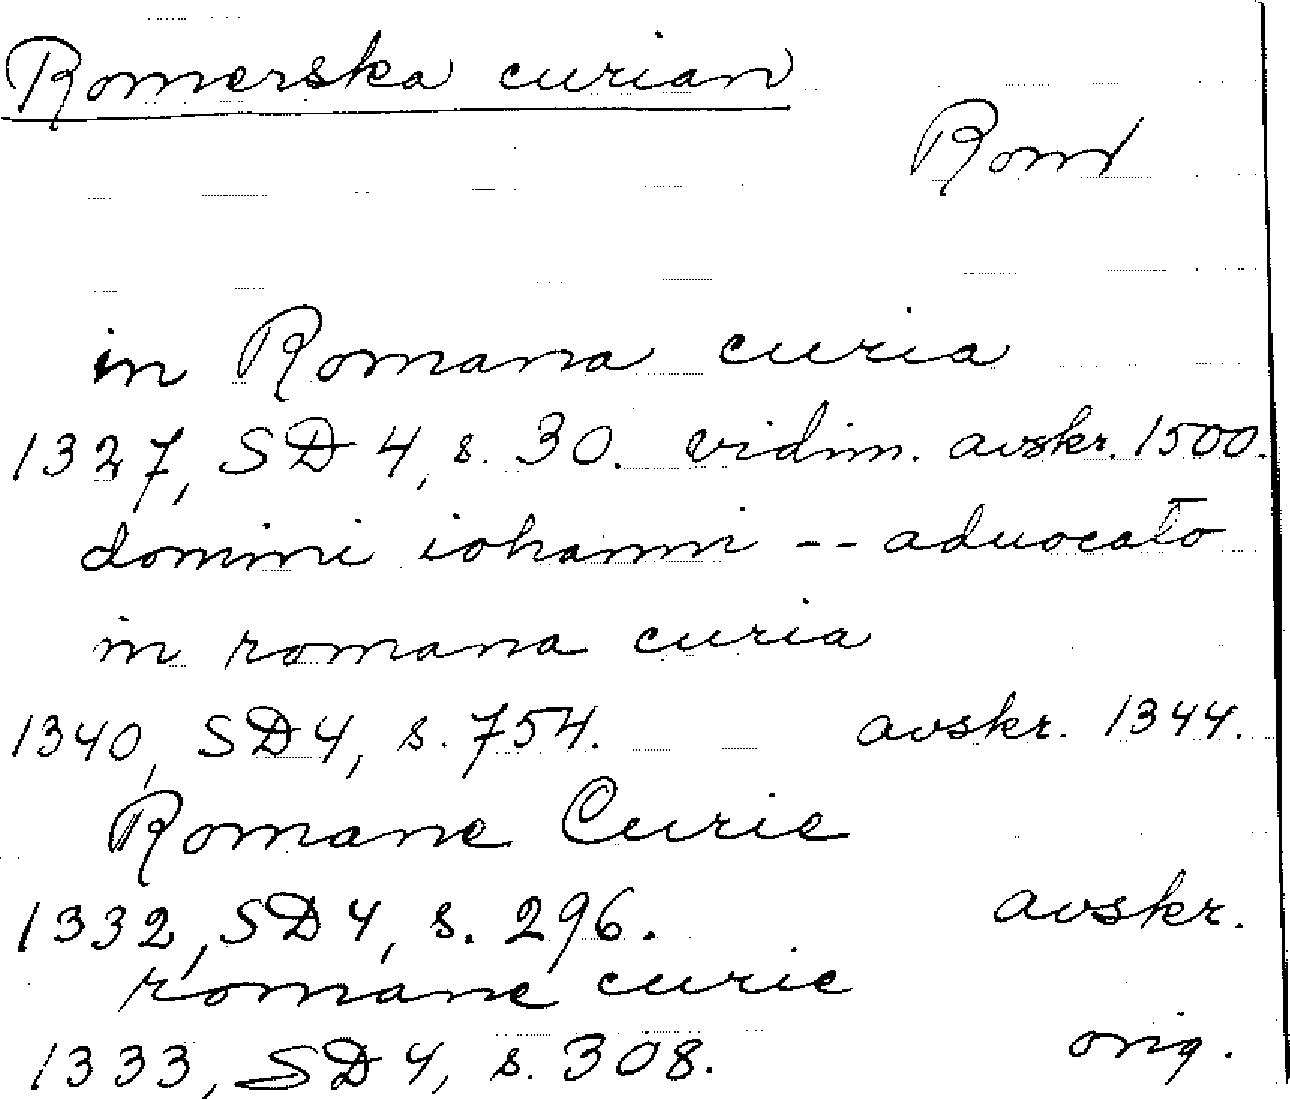 Romerska curian
Rom
in Romana curia
1327, SD 4, s. 30. vidim. avskr. 1500.
domini iohanni -- aduocato
in romana curia
1340, SD 4, s. 754. avskr. 1344.
Romane Curie
1332, SD 4, s. 296. avskr.
romane curie
1333, SD 4, s. 308. orig.